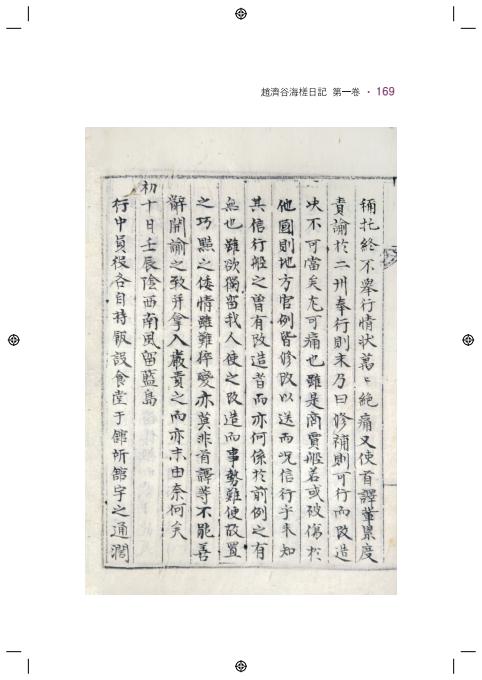 趙濟谷海槎日記 第一巻 · 169
稱托終不擧行情狀萬〻絶痛又使首譯輩累度
責諭於二州奉行則末乃曰修補則可行而改造
決不可當矣尤可痛也雖是商賈船若或被傷於
他國則地方官例皆修改以送而况信行乎未知
其信行船之曾有改造者而亦何係於前例之有
無也雖欲獨留我人使之改造而事勢難便故置
之巧黠之倭情雖難猝變亦莫非首譯等不能善
辭開諭之致幷拿入嚴責之而亦末由奈何矣
初十日壬辰陰西南風留藍島
行中員役各自持飯設食堂于館所館宇之通濶